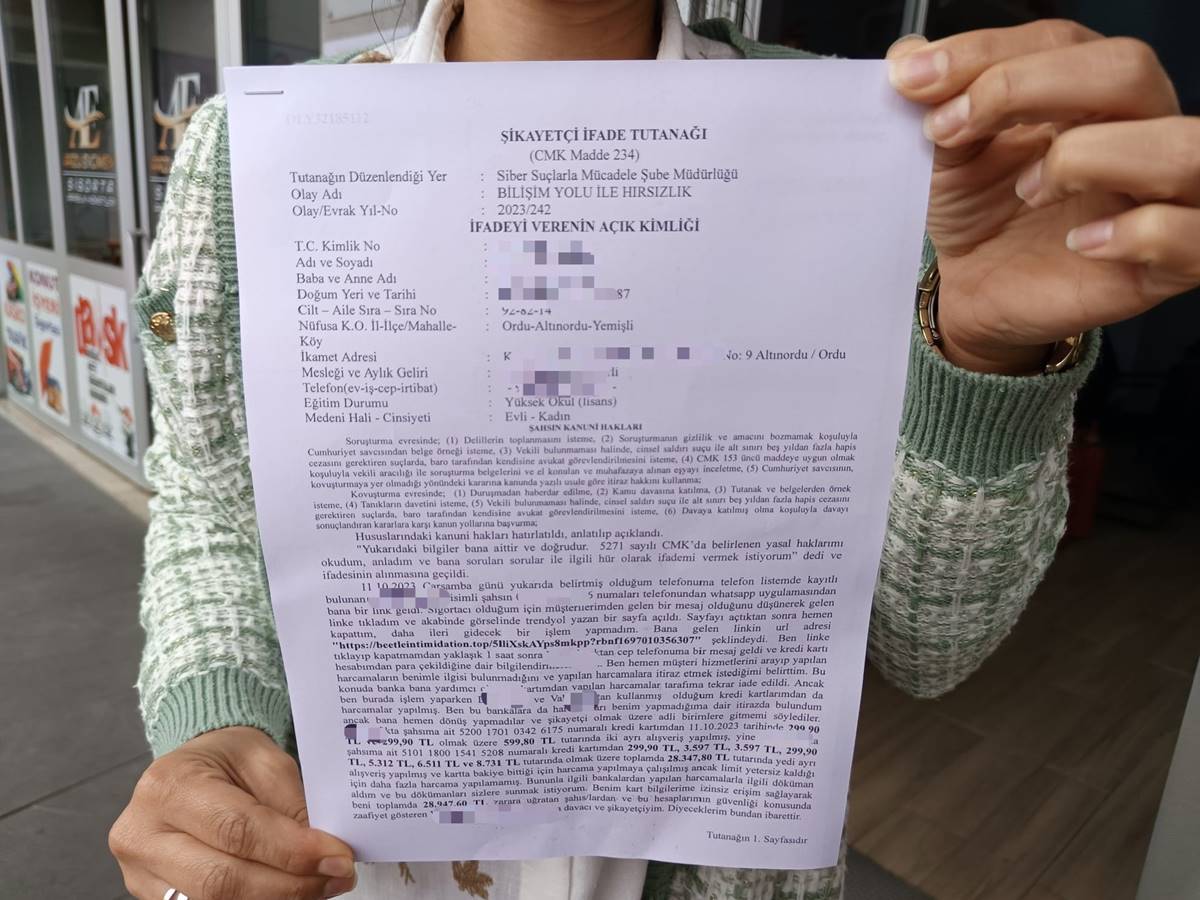 DLY32185112
ŞİKAYETÇİ İFADE TUTANAĞI
(CMK Madde 234)
Tutanağın Düzenlendiği Yer : Siber Suçlarla Mücadele Şube Müdürlüğü
Olay Adı : BİLİŞİM YOLU İLE HIRSIZLIK
Olay/Evrak Yıl-No : 2023/242
İFADEYİ VERENİN AÇIK KİMLİĞİ
T.C. Kimlik No :
Adı ve Soyadı :
Baba ve Anne Adı :
Doğum Yeri ve Tarihi : 87
Cilt – Aile Sıra – Sıra No :
Nüfusa K.O. İl-İlçe/Mahalle- : Ordu-Altınordu-Yemişli
Köy
İkamet Adresi : K No: 9 Altınordu / Ordu
Mesleği ve Aylık Geliri :
Telefon(ev-iş-cep-irtibat) :
Eğitim Durumu : Yüksek Okul (lisans)
Medeni Hali - Cinsiyeti : Evli - Kadın
ŞAHSIN KANUNİ HAKLARI
Soruşturma evresinde; (1) Delillerin toplanmasını isteme, (2) Soruşturmanın gizlilik ve amacını bozmamak koşuluyla
Cumhuriyet savcısından belge örneği isteme, (3) Vekili bulunmaması halinde, cinsel saldırı suçu ile alt sınırı beş yıldan fazla hapis
cezasını gerektiren suçlarda, baro tarafından kendisine avukat görevlendirilmesini isteme, (4) CMK 153 üncü maddeye uygun olmak
koşuluyla vekili aracılığı ile soruşturma belgelerini ve el konulan ve muhafazaya alınan eşyayı inceletme, (5) Cumhuriyet savcısının,
kovuşturmaya yer olmadığı yönündeki kararına kanunda yazılı usule göre itiraz hakkını kullanma;
Kovuşturma evresinde; (1) Duruşmadan haberdar edilme, (2) Kamu davasına katılma, (3) Tutanak ve belgelerden örnek
isteme, (4) Tanıkların davetini isteme, (5) Vekili bulunmaması halinde, cinsel saldırı suçu ile alt sınırı beş yıldan fazla hapis cezasını
gerektiren suçlarda, baro tarafından kendisine avukat görevlendirilmesini isteme, (6) Davaya katılmış olma koşuluyla davayı
sonuçlandıran kararlara karşı kanun yollarına başvurma;
Hususlarındaki kanuni hakları hatırlatıldı, anlatılıp açıklandı.
"Yukarıdaki bilgiler bana aittir ve doğrudur. 5271 sayılı CMK'da belirlenen yasal haklarımı
okudum, anladım ve bana soruları sorular ile ilgili hür olarak ifademi vermek istiyorum" dedi ve
ifadesinin alınmasına geçildi.
11.10.2023 Çarşamba günü yukarıda belirtmiş olduğum telefonuma telefon listemde kayıtlı
bulunan isimli şahsın ( 5 numaları telefonundan whatsapp uygulamasından
bana bir link geldi. Sigortacı olduğum için müşterierimden gelen bir mesaj olduğunu düşünerek gelen
linke tıkladım ve akabinde görselinde trendyol yazan bir sayfa açıldı. Sayfayı açtıktan sonra hemen
kapattım, daha ileri gidecek bir işlem yapmadım. Bana gelen linkin url adresi
"https://beetleintimidation.top/5IliXskAYps8mkpp?rbnf1697010356307" şeklindeydi. Ben linke
tıklayıp kapatmamdan yaklaşık 1 saat sonra ktan cep telefonuma bir mesaj geldi ve kredi kartı
hesabımdan para çekildiğine dair bilgilendirn Ben hemen müşteri hizmetlerini arayıp yapılan
harcamaların benimle ilgisi bulunmadığını ve yapılan harcamalara itiraz etmek istediğimi belirttim. Bu
konuda banka bana yardımcı artımdan yapılan harcamalar tarafıma tekrar iade edildi. Ancak
ben burada işlem yaparken ve Va tan kullanmış olduğum kredi kartlarımdan da
harcamalar yapılmış. Ben bu bankalara da har arı benim yapmadığıma dair itirazda bulundum
ancak bana hemen dönüş yapmadılar ve şikayetçi olmak üzere adli birimlere gitmemi söylediler.
kta şahsıma ait 5200 1701 0342 6175 numaralı kredi kartımdan 11.10.2023 tarihinde 299,90
TL 299,90 TL olmak üzere 599,80 TL tutarında iki ayrı alışveriş yapılmış, yine a
şahsıma ait 5101 1800 1541 5208 numaralı kredi kartımdan 299,90 TL, 3.597 TL, 3.597 TL, 299,90
TL, 5.312 TL, 6.511 TL ve 8.731 TL tutarında olmak üzere toplamda 28.347,80 TL tutarında yedi ayrı
alışveriş yapılmış ve kartta bakiye bittiği için harcama yapılmaya çalışılmış ancak limit yetersiz kaldığı
için daha fazla harcama yapılamamış. Bununla ilgili bankalardan yapılan harcamalarla ilgili döküman
aldım ve bu dökümanları sizlere sunmak istiyorum. Benim kart bilgilerime izinsiz erişim sağlayarak
beni toplamda 28.947,60 TL zarara uğratan şahıs/lardan ve bu hesaplarımın güvenliği konusunda
zaafiyet gösteren davacı ve şikayetçiyim. Diyeceklerim bundan ibarettir.
Tutanağın 1. Sayfasıdır
AE
SİGORTA
KONUT